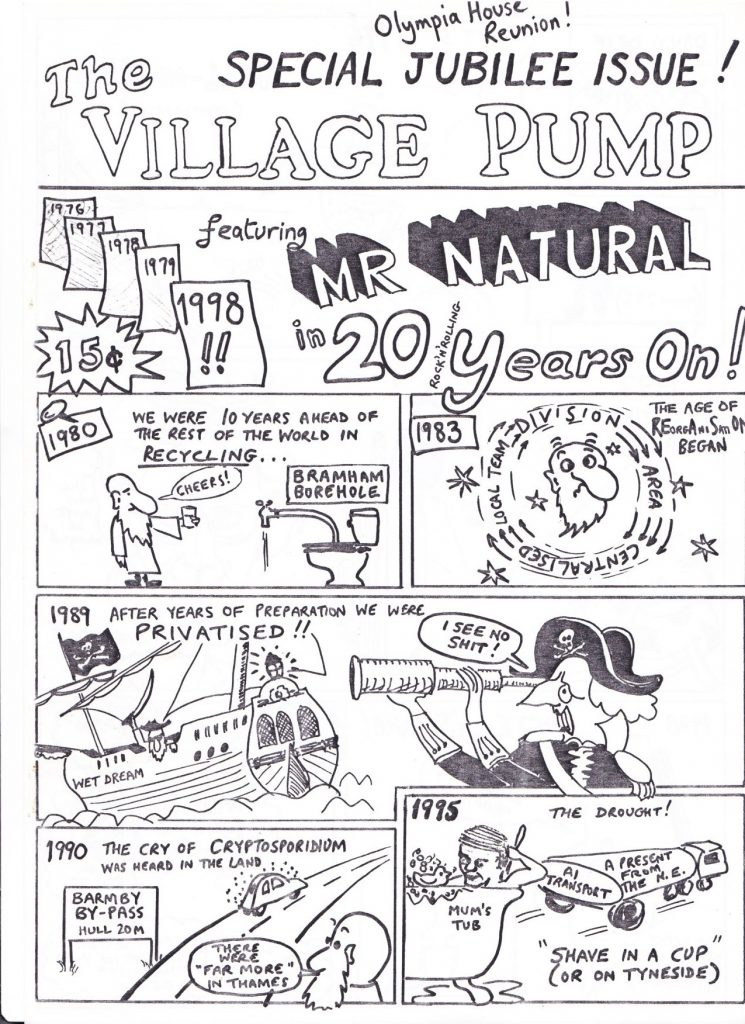 Olympia House
Reunion!
SPECIAL JUBILEE ISSUE!
The
VILLAGE PUMP
1976
1977
1978
1979
1998
!!
15¢
featuring
MR NATURAL
in 20 ROCK'N'ROLLING Years On!
1980
WE WERE 10 YEARS AHEAD OF
THE REST OF THE WORLD IN
RECYCLING...
CHEERS!
BRAMHAM
BOREHOLE
1983
THE AGE OF
REorgANiSatiON
BEGAN
LOCAL TEAM
DIVISION
AREA
CENTRALISED
1989 AFTER YEARS OF PREPARATION WE WERE
PRIVATISED!!
I SEE NO
SHIT!
WET DREAM
1990 THE CRY OF CRYPTOSPORIDIUM
WAS HEARD IN THE LAND
BARMBY
BY-PASS
HULL 20M
THERE
WERE
"FAR MORE"
IN THAMES
1995
THE DROUGHT!
MUM'S
TUB
A1
TRANSPORT
A PRESENT
FROM
THE N.E.
"SHAVE IN A CUP"
(OR ON TYNESIDE)